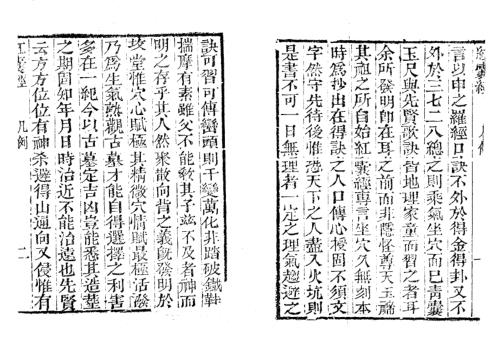 紅囊經
凡例
一
言以申之羅經口訣不外於得金得卦又不
外於三七二八總之則乘氣坐穴而已靑囊
玉尺與先賢歌訣皆地理家童而習之者耳
余所發明卽在耳之前而非隱怪尊天玉諭
其祖之所自始紅囊經專言坐穴久無刻本
時爲抄出在得訣之人口傳心授固不須文
字然守先待後惟恐天下之人盡入火坑則
是書不可一日無理者一定之理氣趨避之
訣可習可傳巒頭則千變萬化非踏破鐵鞋
揣摩有素雖父不能敎其子茲不及者神而
明之存乎其人然聚散向背之義旣發明於
坟堂惟穴心賦極其精微穴情賦最極活潑
乃爲生氣熟觀古墓才能自得選擇之利害
多在一紀今以古墓定吉凶豈能悉其造塟
之期固知年月日時治近不能治遠也先賢
云方方位位有神杀避得山過向又侵惟有
紅囊經
凡例
二